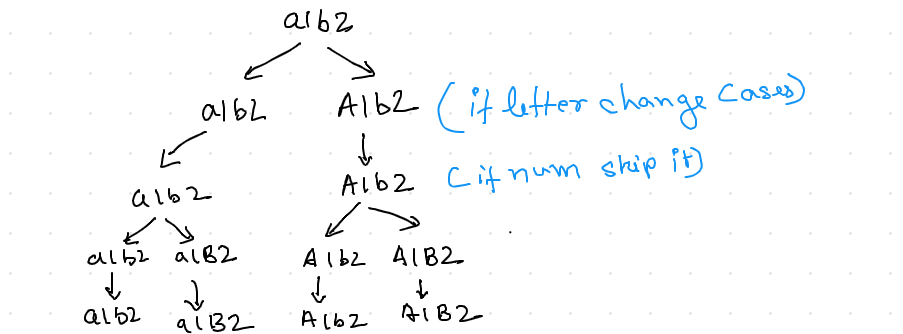 a1b2
a1b2 A1b2 (if letter change cases)
a1b2 A1b2 (if num skip it)
a1b2 a1B2 A1b2 A1B2
a1b2 a1B2 A1b2 A1B2